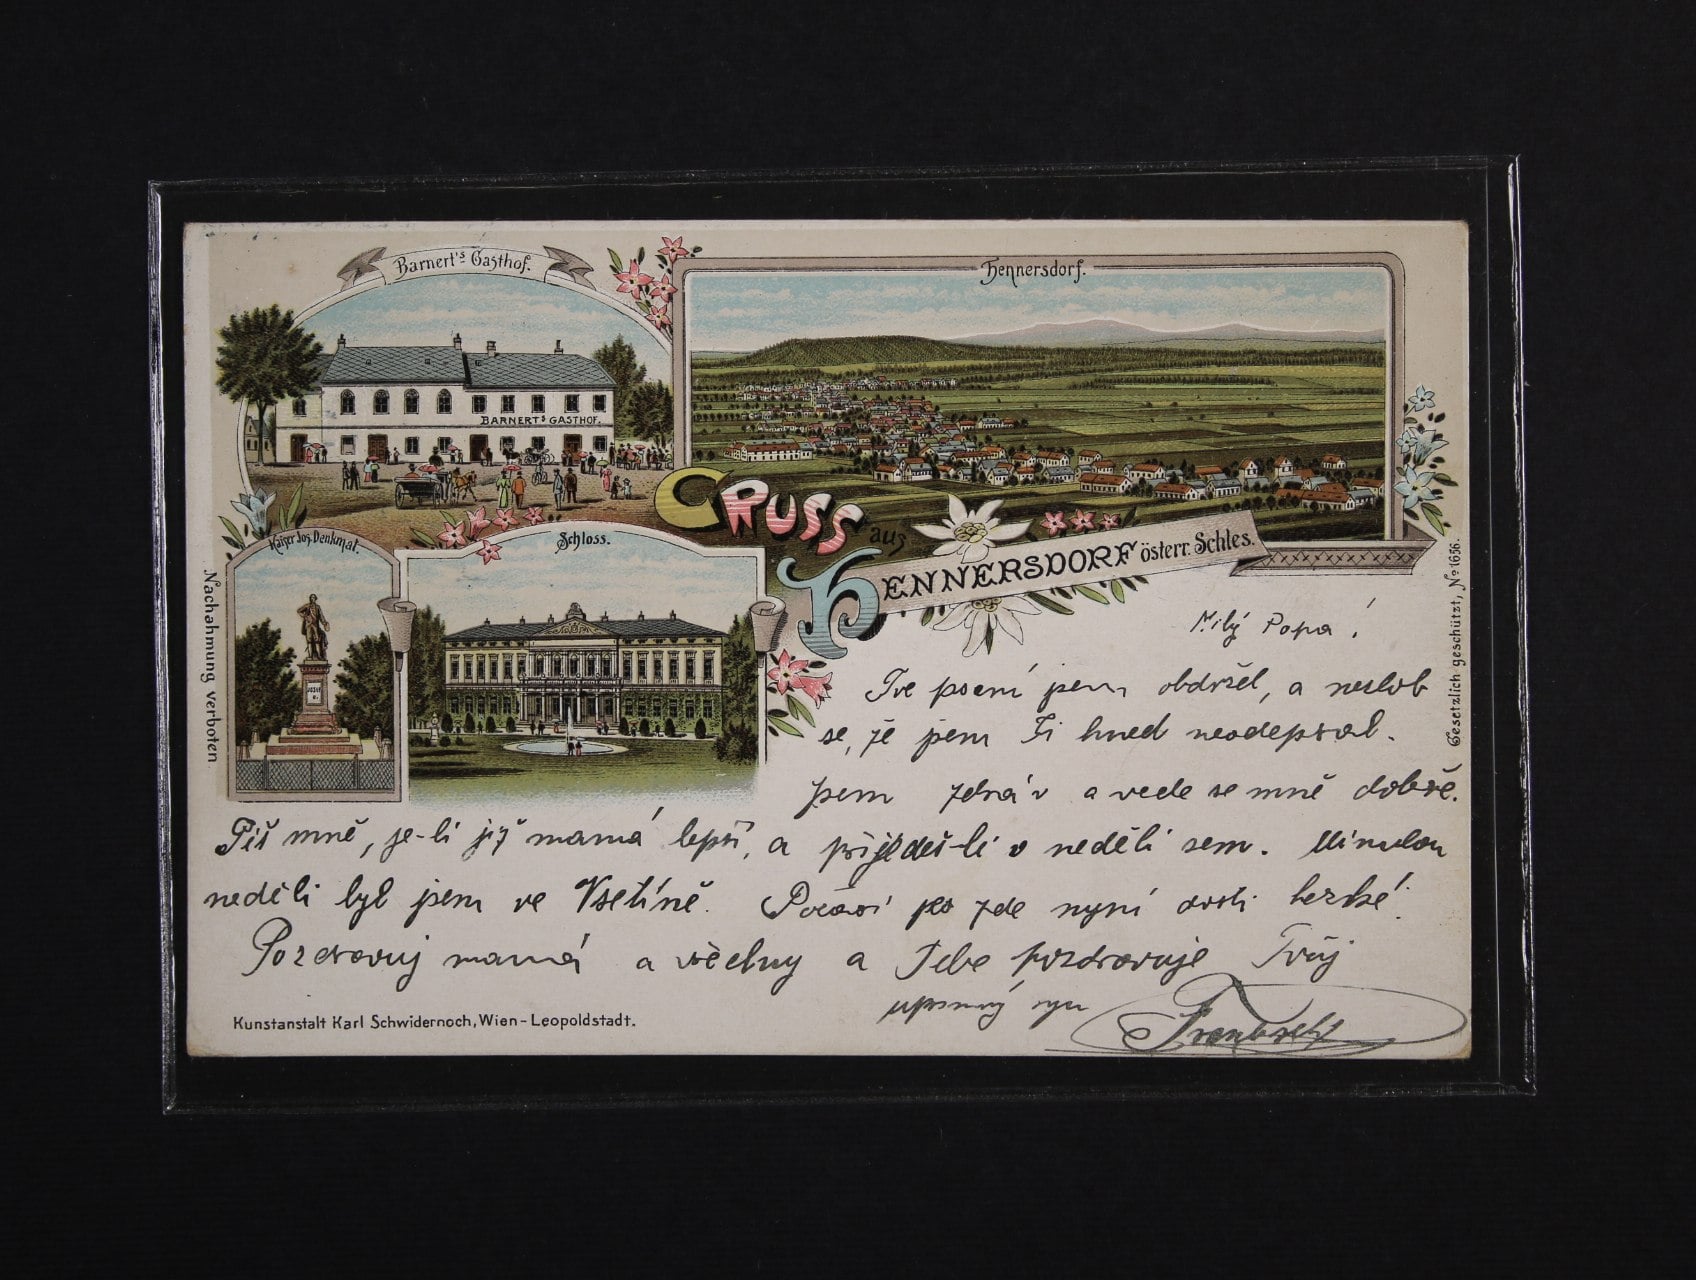 Barnert's Gasthof.
BARNERT'S GASTHOF.
Hennersdorf.
Kaiser Jos. Denkmal.
JOSEF
II.
Schloss.
GRUSS aus
HENNERSDORF österr. Schles.
Nachahmung verboten
Gesetzlich geschützt, No 1656.
Milý Papá!
Tvé psaní jsem obdržel, a nezlob
se, že jsem Ti hned neodepsal.
Jsem zdráv a vede se mně dobře.
Piš mně, je-li již mamá lepší, a přijedeš-li v neděli sem. Minulou
neděli byl jsem ve Vsetíně. Počasí jes zde nyní dosti hezké.
Pozdravuj mamá a všechny a Tebe pozdravuje Tvůj
upřímný syn
Kunstanstalt Karl Schwidernoch, Wien-Leopoldstadt.